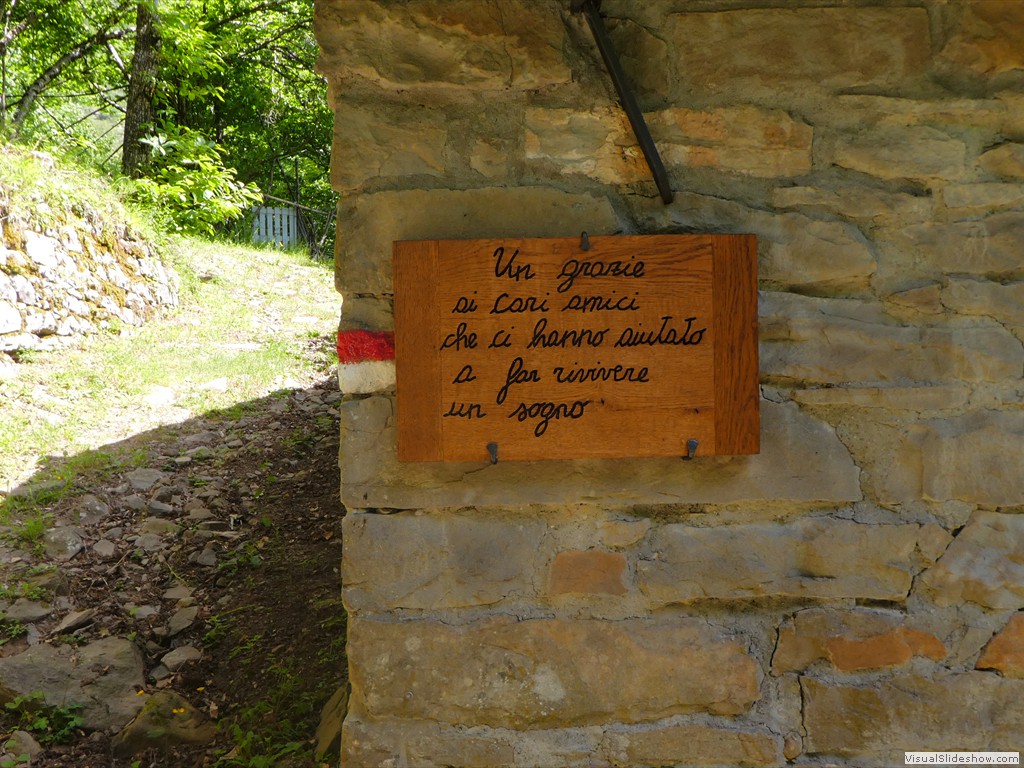 Un grazie
ai cari amici
che ci hanno aiutato
a far rivivere
un sogno
VisualSlideshow.com